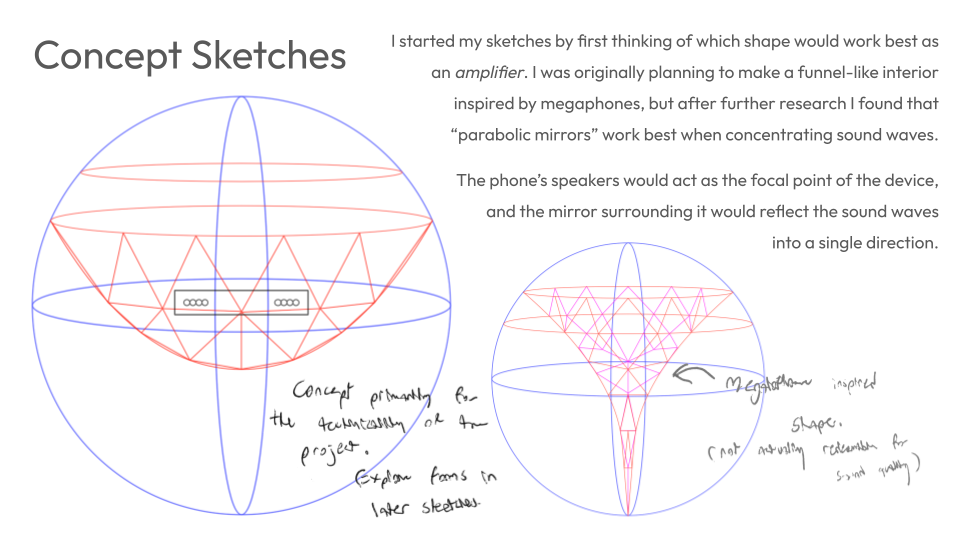 Concept Sketches
I started my sketches by first thinking of which shape would work best as
an amplifier. I was originally planning to make a funnel-like interior
inspired by megaphones, but after further research I found that
“parabolic mirrors” work best when concentrating sound waves.
The phone’s speakers would act as the focal point of the device,
and the mirror surrounding it would reflect the sound waves
into a single direction.
Concept primarily for
the technicality of the
project.
Explore forms in
later sketches.
inspired
shape.
(not for
sound quality)